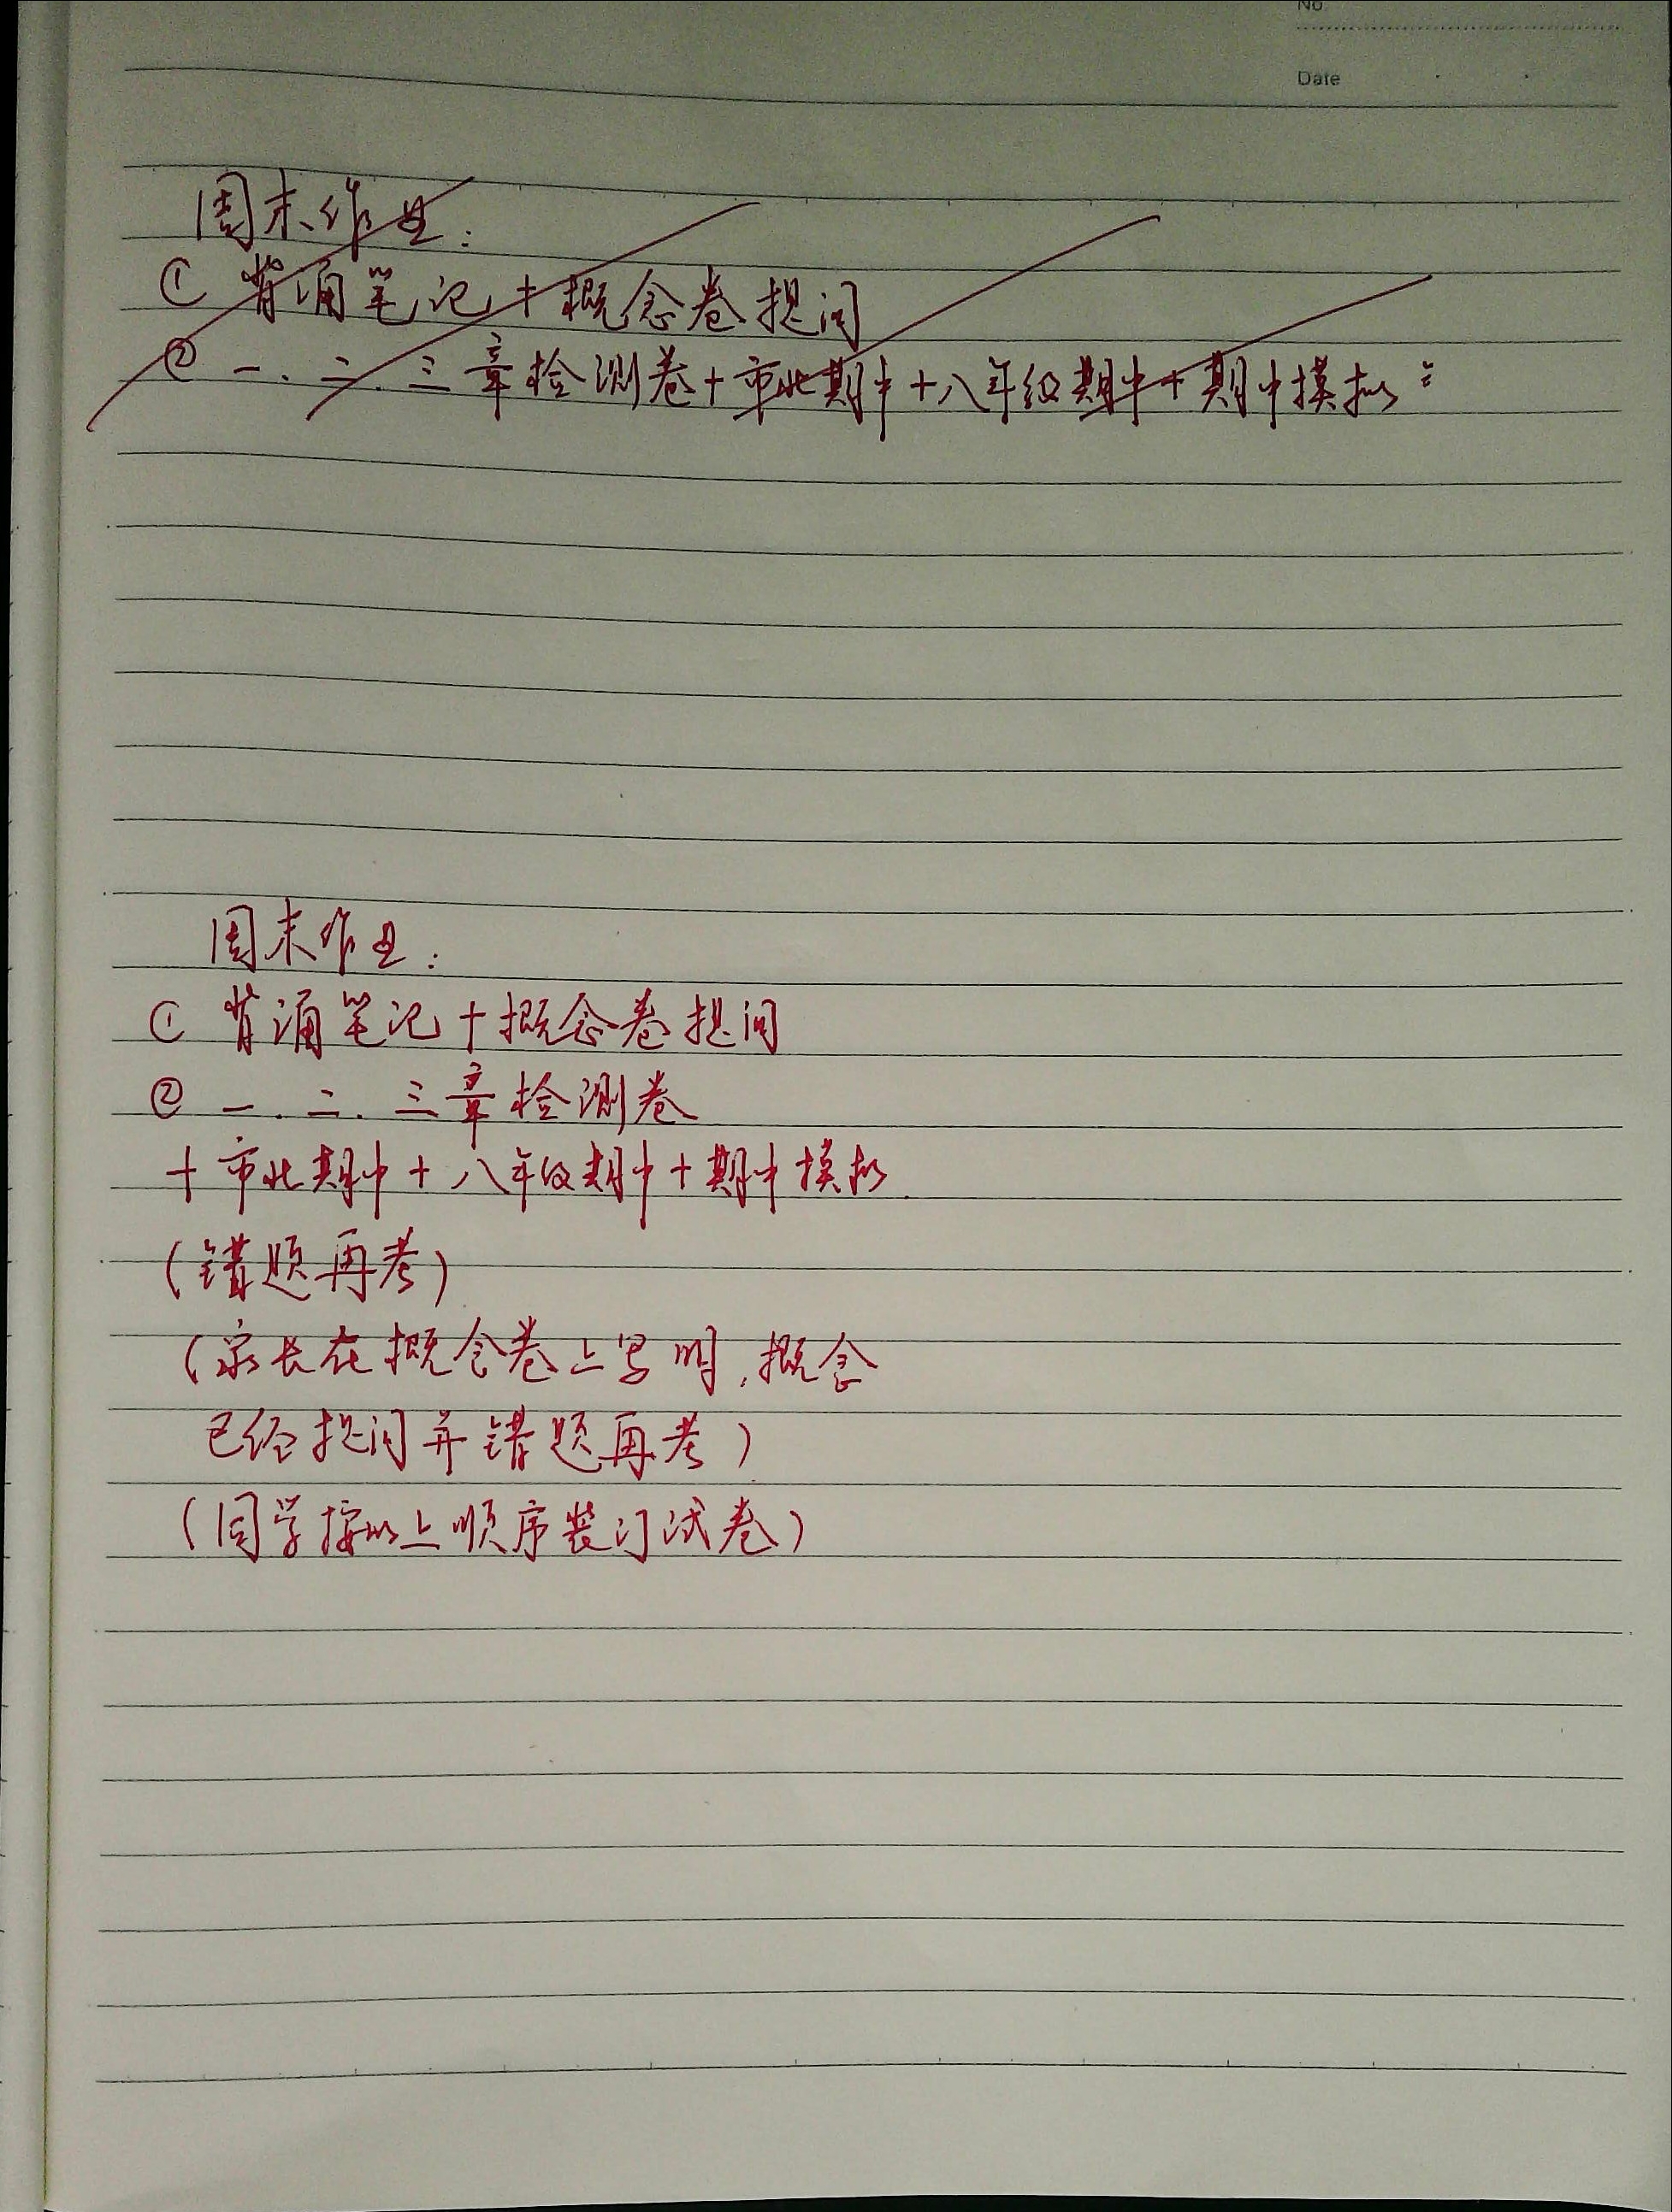 No.
Date
周末作业:
① 背诵笔记+概念卷提问
② 一.二.三章检测卷+市北期中+八年级期中+期中模拟
周末作业:
① 背诵笔记+概念卷提问
② 一.二.三章检测卷
+市北期中+八年级期中+期中模拟.
(错题再考)
(家长在概念卷上写明,概念
已经提问并错题再考)
(同学按以上顺序装订试卷)